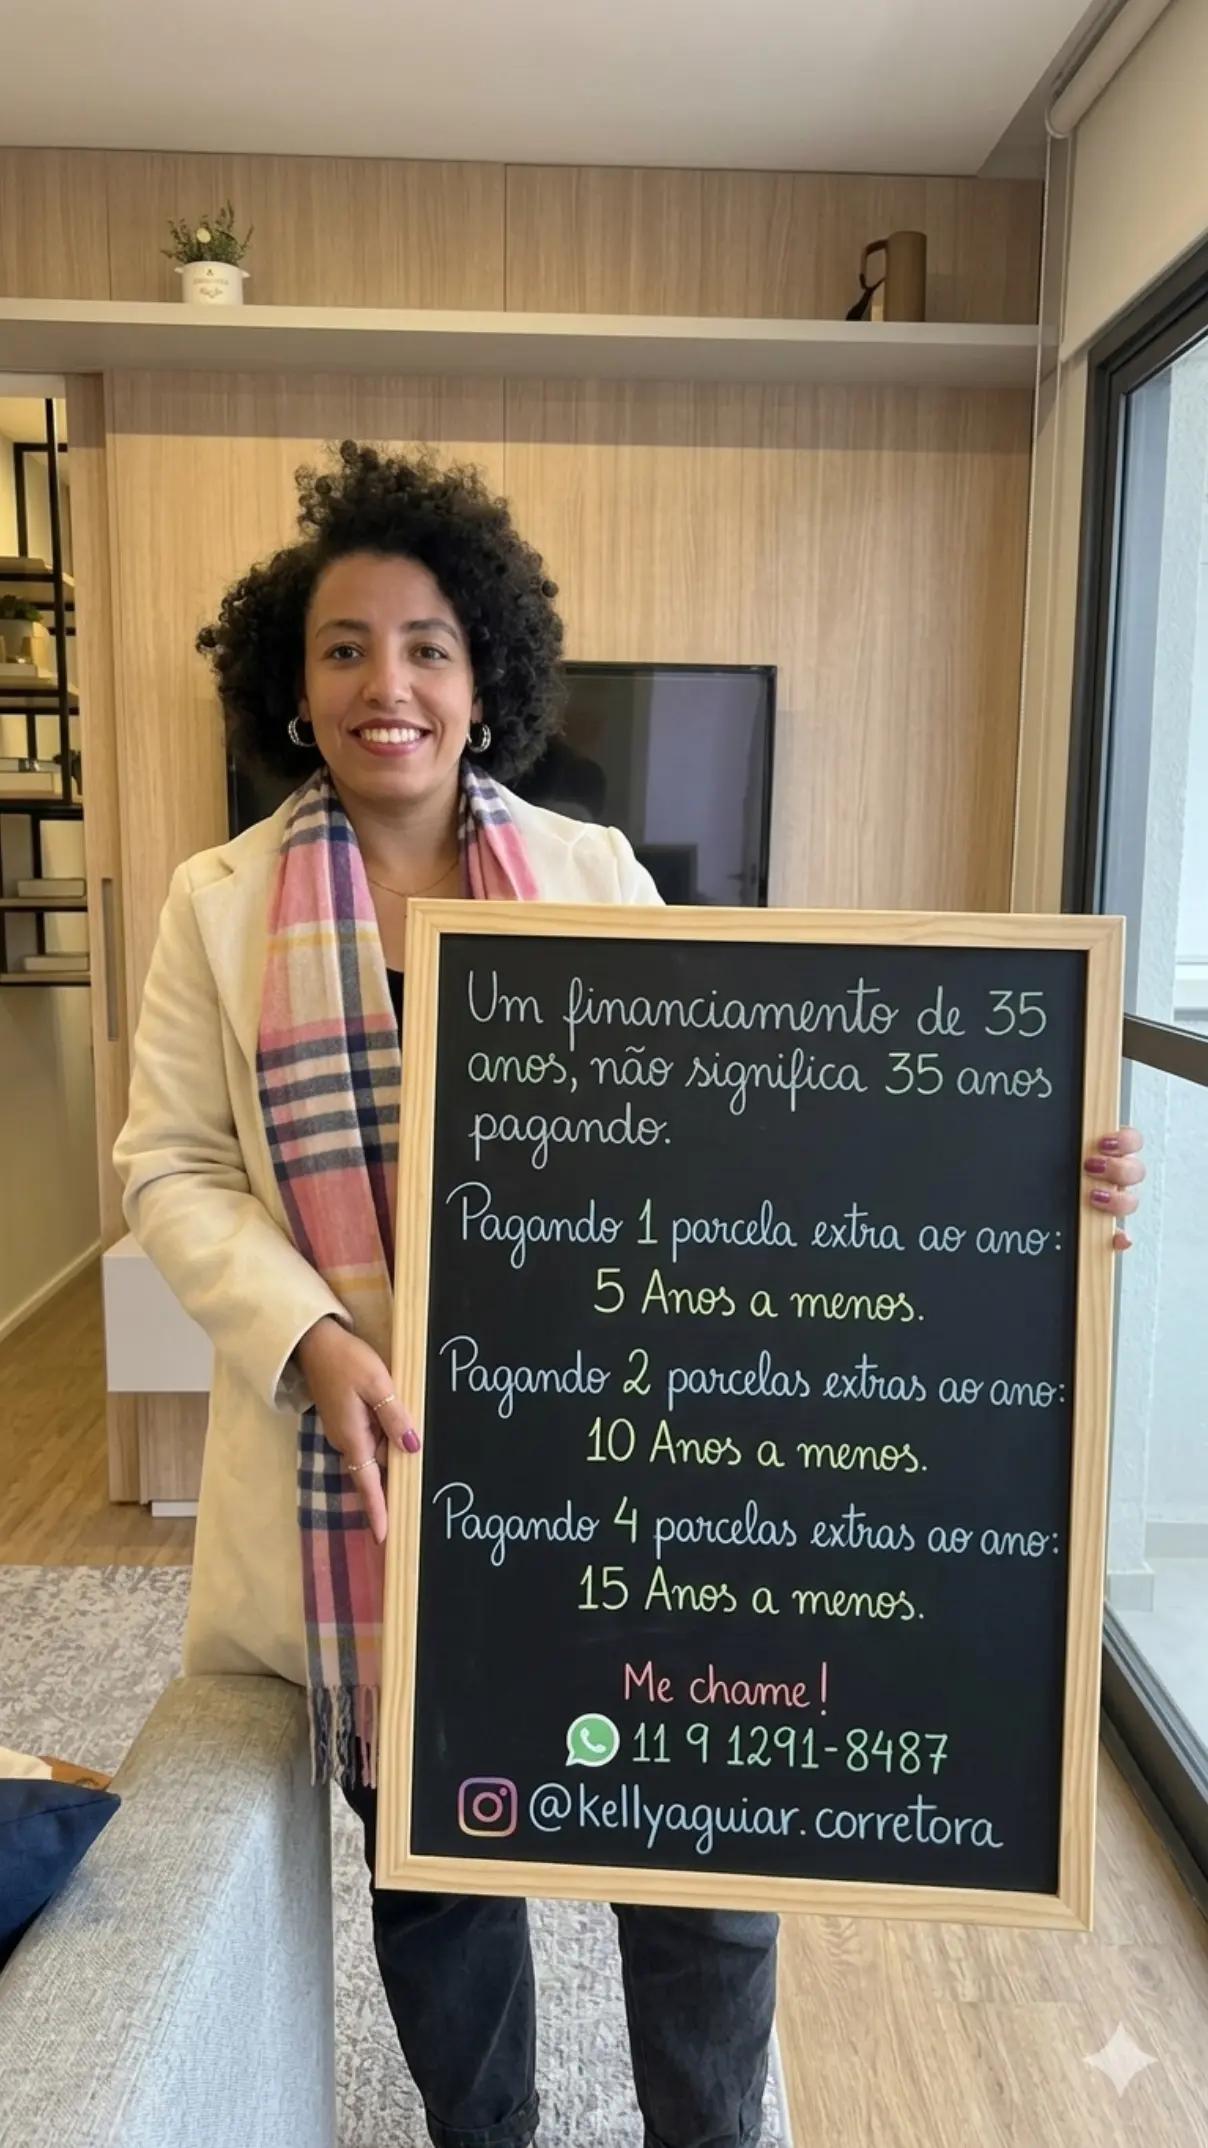 Um financiamento de 35
anos, não significa 35 anos
pagando.
Pagando 1 parcela extra ao ano:
5 Anos a menos.
Pagando 2 parcelas extras ao ano:
10 Anos a menos.
Pagando 4 parcelas extras ao ano:
15 Anos a menos.
Me chame!
11 9 1291-8487
@kellyaguiar.corretora